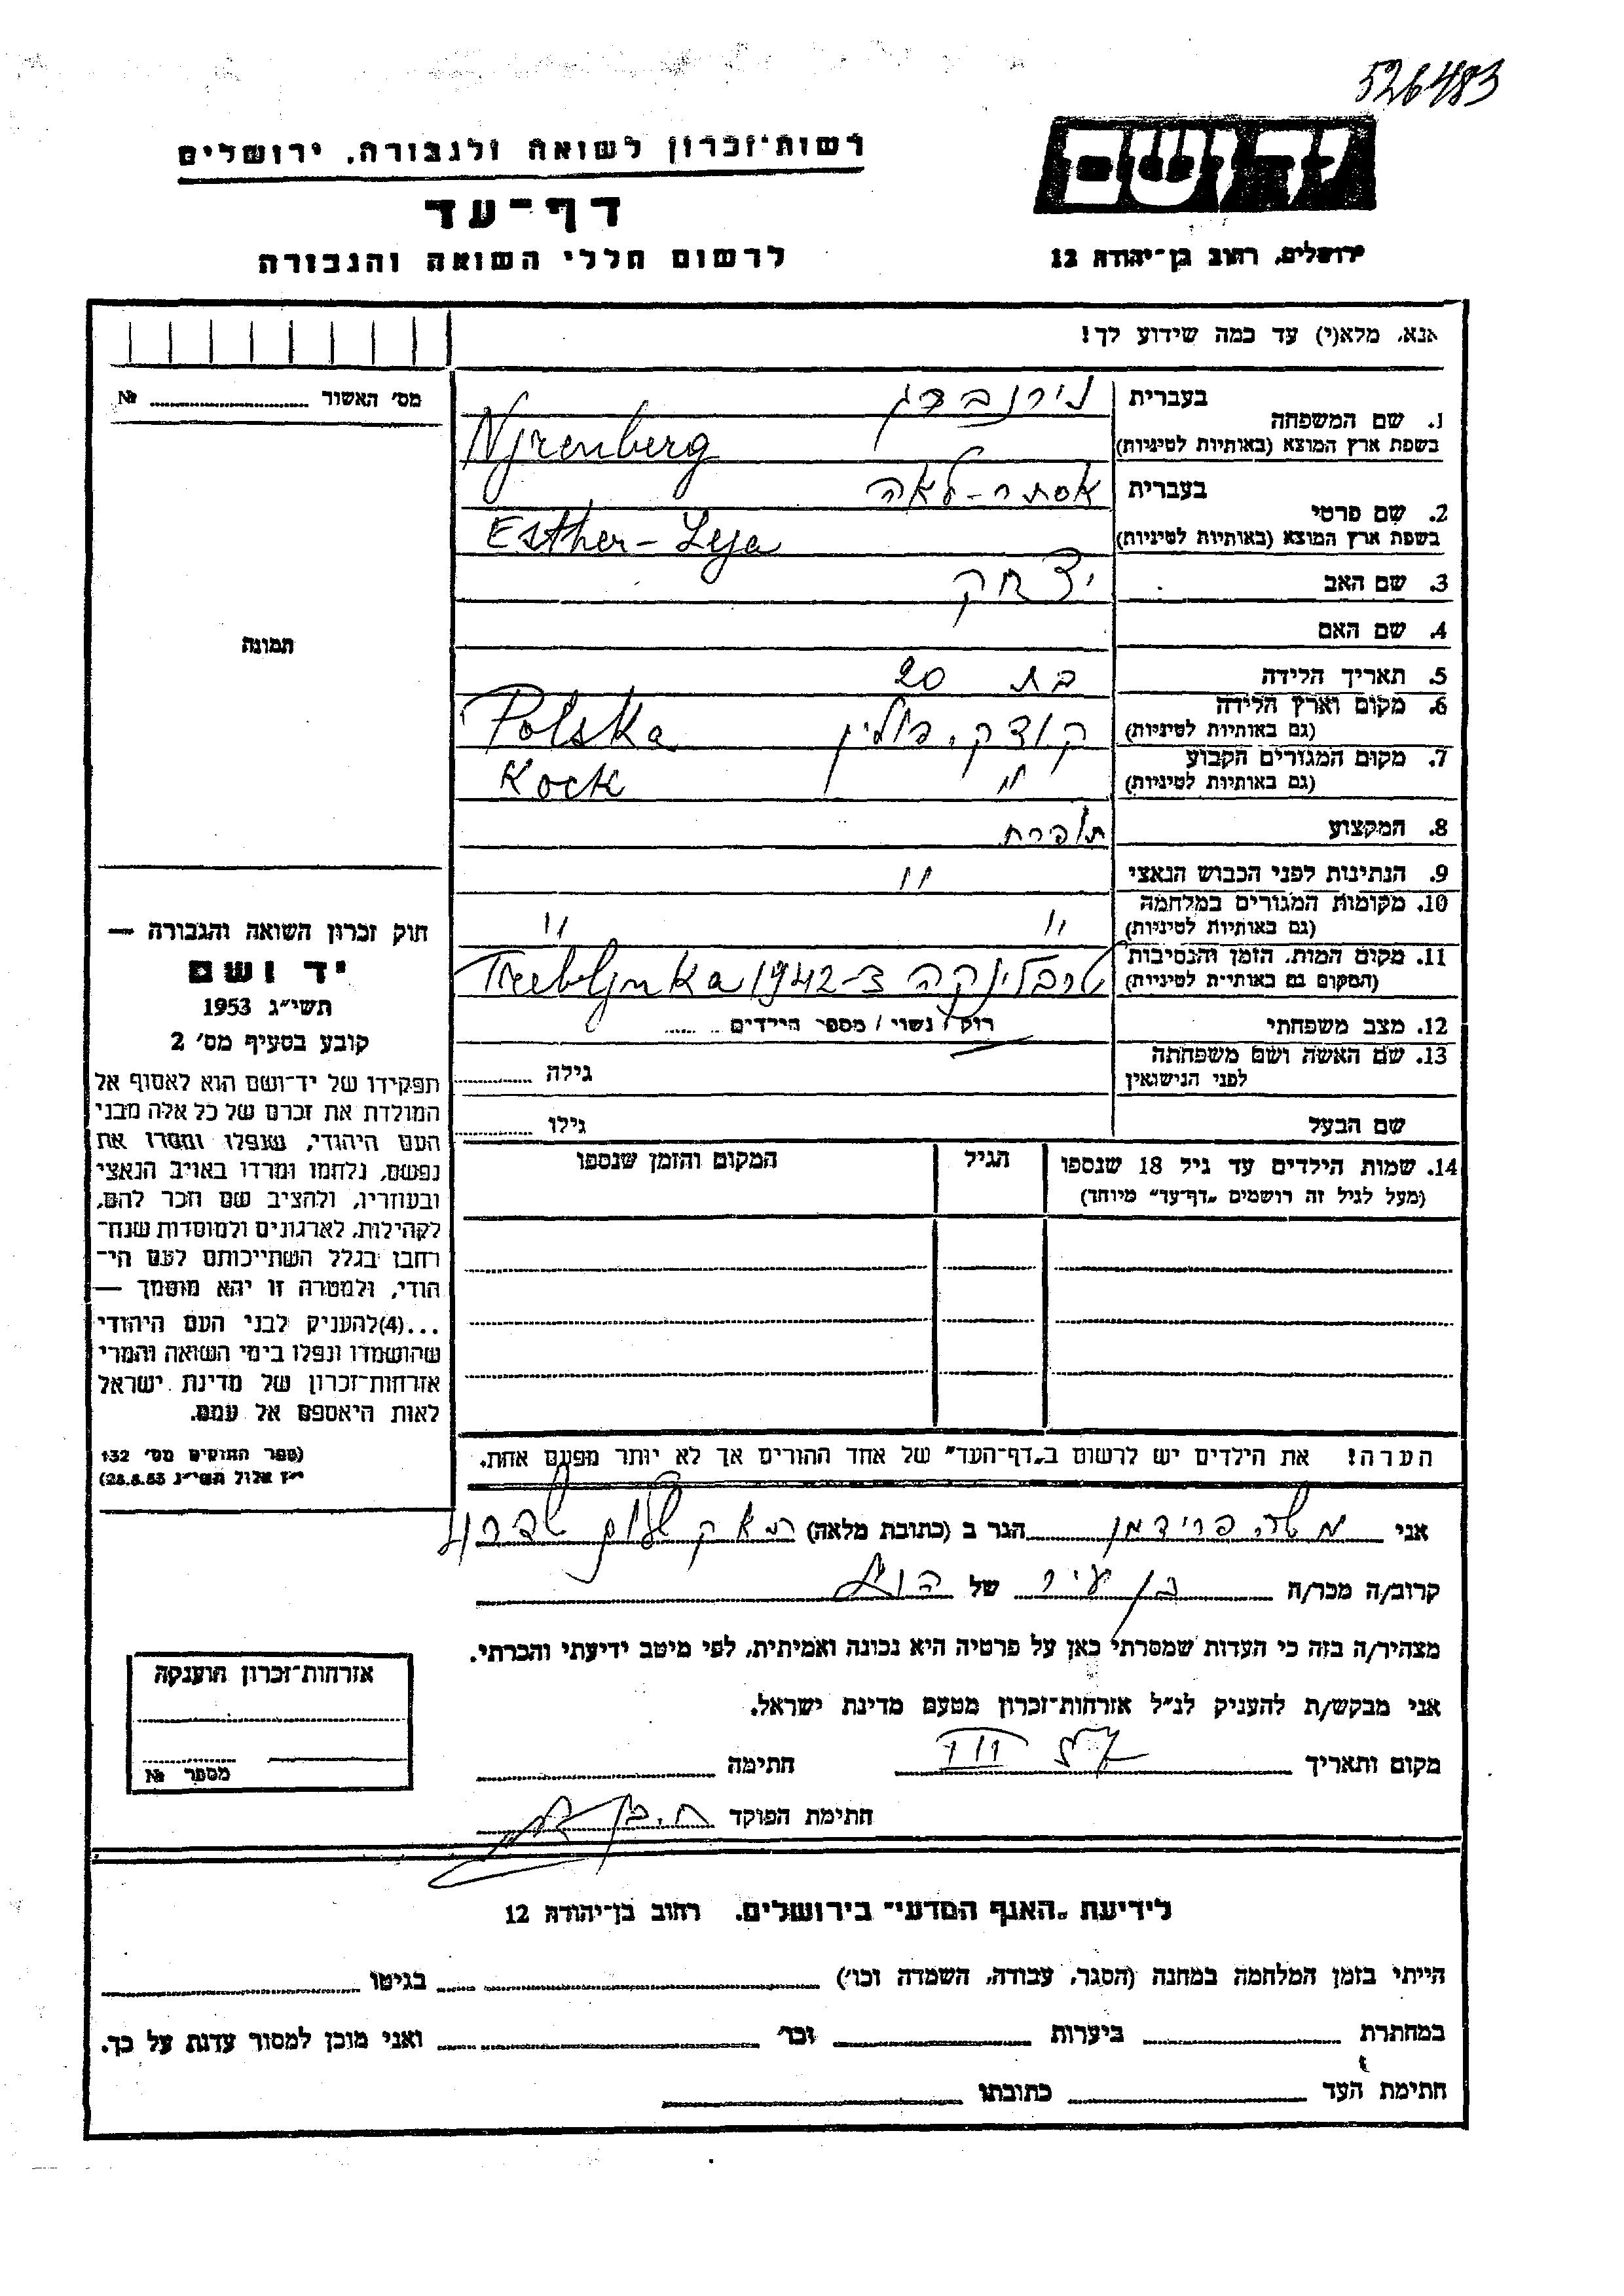 526483
יד ושם
רשות־זכרון לשואה ולגבורה, ירושלים
דף־עד
לרשום חללי השואה והגבורה
ירושלים, רחוב בן־יהודה 12
אנא, מלא(י) עד כמה שידוע לך!
מס׳ האשור № 
תמונה
1. שם המשפחה בעברית נירנברג
בשפת ארץ המוצא (באותיות לטיניות) Njrenberg
2. שם פרטי בעברית אסתר-לאה
בשפת ארץ המוצא (באותיות לטיניות) Esther-Leja
3. שם האב יצחק
4. שם האם
5. תאריך הלידה בת 20
6. מקום וארץ הלידה (גם באותיות לטיניות) קוצק, פולין Polska
7. מקום המגורים הקבוע (גם באותיות לטיניות) " Kock
8. המקצוע תופרת
9. הנתינות לפני הכבוש הנאצי "
10. מקומות המגורים במלחמה (גם באותיות לטיניות) " "
11. מקום המות, הזמן והנסיבות (המקום גם באותיות לטיניות) טרבלינקה ב-1942 Trebljnka
12. מצב משפחתי רוק / נשוי / מספר הילדים
13. שם האשה ושם משפחתה לפני הנישואין גילה
שם הבעל גילו
14. שמות הילדים עד גיל 18 שנספו הגיל המקום והזמן שנספו
(מעל לגיל זה רושמים „דף־עד" מיוחד)
הערה! את הילדים יש לרשום ב„דף־העד" של אחד ההורים אך לא יותר מפעם אחת.
חוק זכרון השואה והגבורה —
יד ושם
תשי״ג 1953
קובע בסעיף מס׳ 2
תפקידו של יד־ושם הוא לאסוף אל
המולדת את זכרם של כל אלה מבני
העם היהודי, שנפלו ומסרו את
נפשם, נלחמו ומרדו באויב הנאצי
ובעוזריו, ולהציב שם וזכר להם,
לקהילות, לארגונים ולמוסדות שנח־
רבו בגלל השתייכותם לעם הי־
הודי, ולמטרה זו יהא מוסמך —
...(4) להעניק לבני העם היהודי
שהושמדו ונפלו בימי השואה והמרי
אזרחות־זכרון של מדינת ישראל
לאות היאספם אל עמם.
(ספר החוקים מס׳ 132
י״ז אלול תשי״ג 28.8.53)
אני משה פרידמן הגר ב (כתובת מלאה)
קרוב/ה מכר/ה בן עיר של הנ״ל
מצהיר/ה בזה כי העדות שמסרתי כאן על פרטיה היא נכונה ואמיתית, לפי מיטב ידיעתי והכרתי.
אני מבקש/ת להעניק לנ״ל אזרחות־זכרון מטעם מדינת ישראל.
מקום ותאריך חתימה
חתימת הפוקד
אזרחות־זכרון הוענקה
מספר №
לידיעת „האגף המדעי" בירושלים, רחוב בן־יהודה 12
הייתי בזמן המלחמה במחנה (הסגר, עבודה, השמדה וכו׳) בגיטו
במחתרת ביערות וכו׳ ואני מוכן למסור עדות על כך.
חתימת העד כתובתו